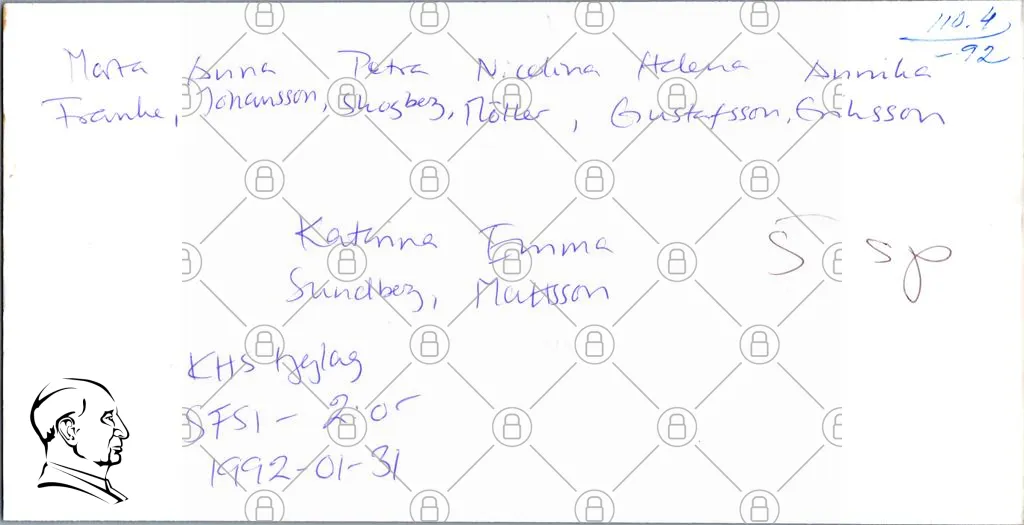 110.4
-92
Marta Anna Petra Nicolina Helena Annika
Franke, Johansson, Skogberg, Möller, Gustafsson, Eriksson
Katarina Emma
Sundberg, Mattsson
5 sp
KHS tjejlag
SFSI - 2.05
1992-01-31